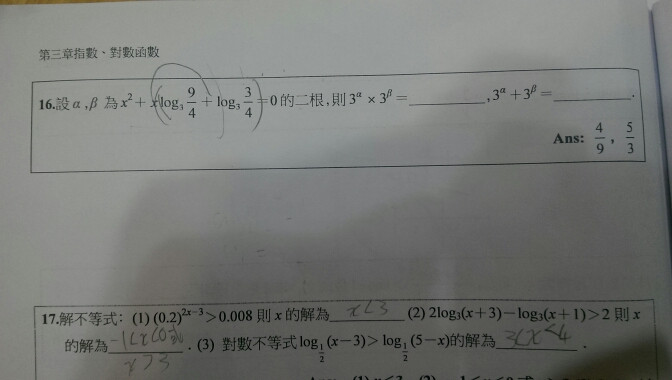 第三章指數、對數函數
16.設 α ,β 為 x² + xlog₃ 9/4 + log₃ 3/4 =0 的二根,則 3^α × 3^β = ________ ,3^α +3^β = ________ .
Ans: 4/9 , 5/3
17.解不等式: (1) (0.2)^(2x−3) > 0.008 則 x 的解為 x<3 (2) 2log₃(x+3)−log₃(x+1)>2 則 x
的解為 -1<x<0 或 x>3 . (3) 對數不等式 log_(1/2) (x−3)> log_(1/2) (5−x)的解為 3<x<4 .